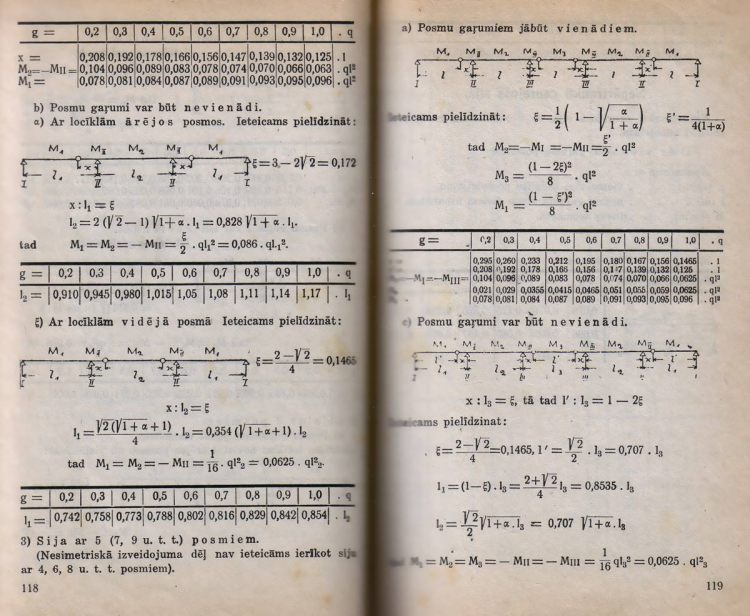 g = 0,2 0,3 0,4 0,5 0,6 0,7 0,8 0,9 1,0 . q
x = 0,208 0,192 0,178 0,166 0,156 0,147 0,139 0,132 0,125 . l
M₂=—M_II= 0,104 0,096 0,089 0,083 0,078 0,074 0,070 0,066 0,063 . ql²
M₁ = 0,078 0,081 0,084 0,087 0,089 0,091 0,093 0,095 0,096 . ql²
b) Posmu gaŗumi var būt nevienādi.
α) Ar locīklām ārējos posmos. Ieteicams pielīdzināt:
M₁ M_II M₂ M_II M₁
x x
ξ = 3 — 2√2 = 0,172
l₁ l₂ l₁
I II II I
x : l₁ = ξ
l₂ = 2 (√2 — 1) √1+α . l₁ = 0,828 √1 + α . l₁.
tad M₁ = M₂ = — M_II = ξ/2 . ql₁² = 0,086 . ql₁².
g = 0,2 0,3 0,4 0,5 0,6 0,7 0,8 0,9 1,0 . q
l₂ = 0,910 0,945 0,980 1,015 1,05 1,08 1,11 1,14 1,17 . l₁
ξ) Ar locīklām vidējā posmā Ieteicams pielīdzināt:
M₁ M_II M₂ M_II M₁
x x
ξ = (2 — √2)/4 = 0,1465
l₁ l₂ l₁
I II II I
x : l₂ = ξ
l₁ = √2 (√1 + α + 1)/4 . l₂ = 0,354 (√1+α + 1) . l₂
tad M₁ = M₂ = — M_II = 1/16 . ql²₂ = 0,0625 . ql²₂.
g = 0,2 0,3 0,4 0,5 0,6 0,7 0,8 0,9 1,0 . q
l₁ = 0,742 0,758 0,773 0,788 0,802 0,816 0,829 0,842 0,854 . l₂
3) Sija ar 5 (7, 9 u. t. t.) posmiem.
(Nesimetriskā izveidojuma dēļ nav ieteicāms ierīkot sija
ar 4, 6, 8 u. t. t. posmiem).
118
a) Posmu gaŗumiem jābūt vienādiem.
M₁ M_II M₂ M_III M₃ M_III M₂ M_II M₁
l l l l l
I II III III II I
Ieteicams pielīdzināt: ξ = 1/2 (1 — √α/(1 + α)) ξ' = 1/4(1+α)
tad M₂ = — M_I = — M_II = ξ'/2 . ql²
M₃ = (1 — 2ξ)²/8 . ql²
M₁ = (1 — ξ')²/8 . ql²
g = 0,2 0,3 0,4 0,5 0,6 0,7 0,8 0,9 1,0 . q
0,295 0,260 0,233 0,212 0,195 0,180 0,167 0,156 0,1465 . l
0,208 0,192 0,178 0,166 0,156 0,147 0,139 0,132 0,125 . l
—M_I=—M_III= 0,104 0,096 0,089 0,083 0,078 0,074 0,070 0,066 0,0625 . ql²
0,021 0,029 0,0355 0,0415 0,0465 0,051 0,055 0,059 0,0625 . ql²
0,078 0,081 0,084 0,087 0,089 0,091 0,093 0,095 0,096 . ql²
Posmu gaŗumi var būt nevienādi.
M₁ M_II M₂ M_III M₃ M_III M₂ M_II M₁
l' x x x x l'
l₁ l₂ l₃ l₂ l₁
I II III III II I
x : l₃ = ξ, tā tad l' : l₃ = 1 — 2ξ
Ieteicams pielīdzinat:
ξ = (2 — √2)/4 = 0,1465, l' = √2/2 . l₃ = 0,707 . l₃
l₁ = (1—ξ) . l₃ = (2+√2)/4 l₃ = 0,8535 . l₃
l₂ = √2/2 √1+α . l₃ = 0,707 √1+α . l₃
M₁ = M₂ = M₃ = — M_II = — M_III = 1/16 ql₃² = 0,0625 . ql²₃
119